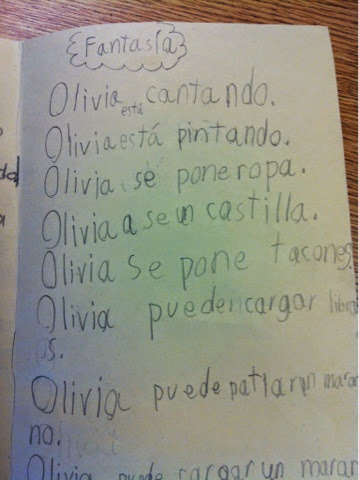 Fantasía
Olivia está cantando.
Olivia está pintando.
Olivia se pone ropa.
Olivia a se un castilla.
Olivia se pone tacones.
Olivia puedencargar libr
os.
Olivia puede patiar un marar
no.
Olivia puede cargar un marar